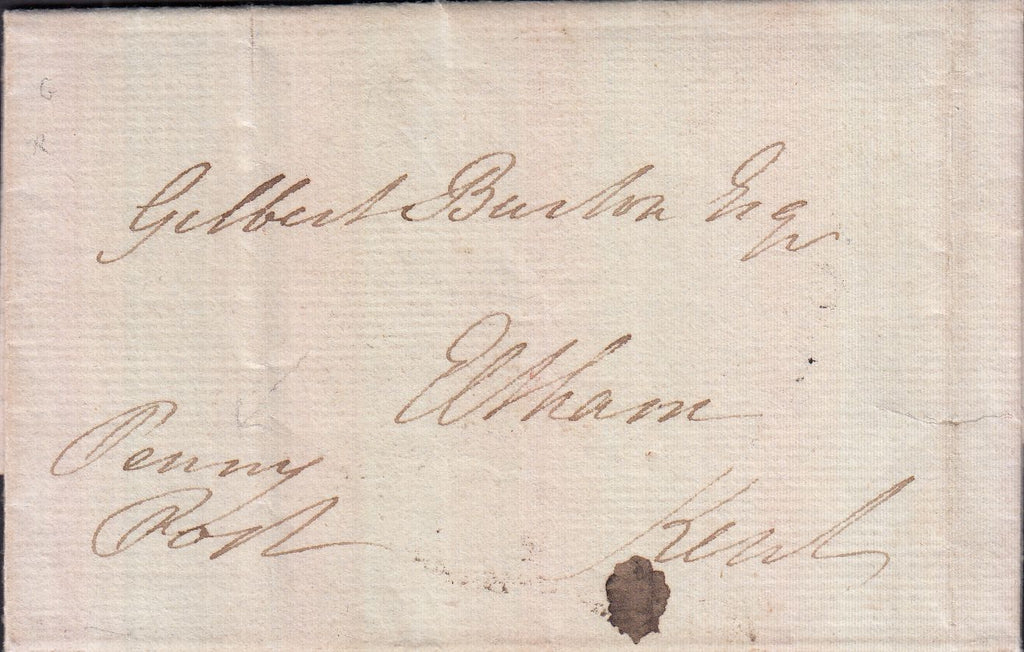 G
R
Gilbert Burton Esqr
Eltham
Penny
Post
Kent